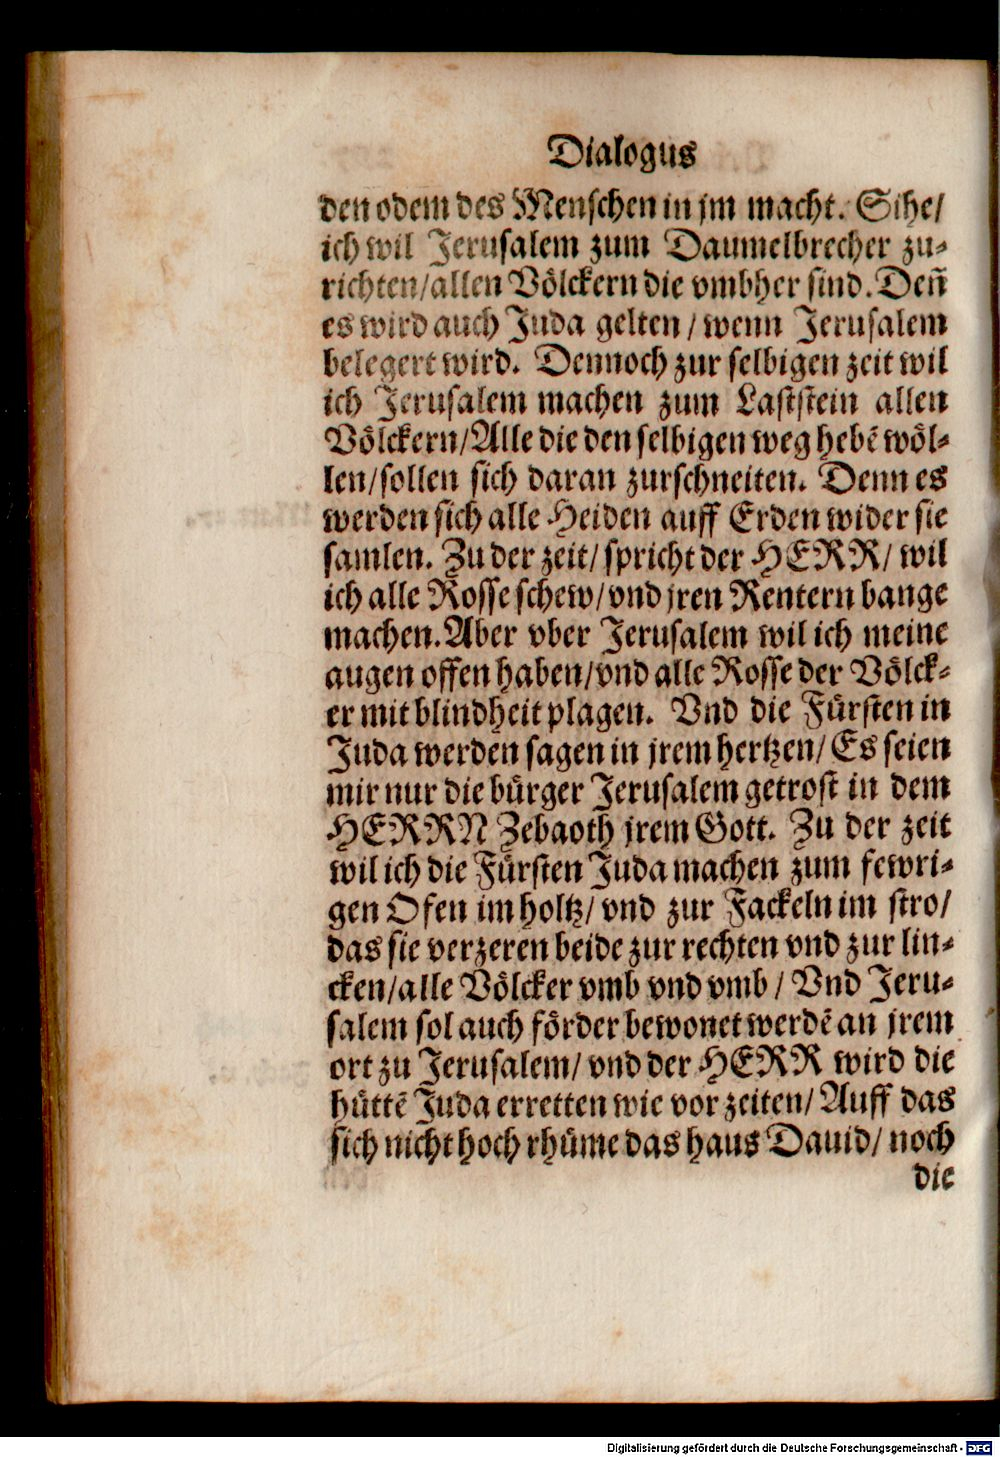 Dialogus
den odem des Menschen in jm macht. Sihe/
ich wil Jerusalem zum Daumelbrecher zu⸗
richten/allen Völckern die vmbher sind. Deñ
es wird auch Juda gelten / wenn Jerusalem
belegert wird. Dennoch zur selbigen zeit wil
ich Jerusalem machen zum Laststein allen
Völckern/Alle die den selbigen weg hebē wöl⸗
len/sollen sich daran zurschneiten. Denn es
werden sich alle Heiden auff Erden wider sie
samlen. Zu der zeit/ spricht der HERR/ wil
ich alle Rosse schew/vnd jren Rentern bange
machen. Aber vber Jerusalem wil ich meine
augen offen haben/vnd alle Rosse der Völck⸗
er mit blindheit plagen. Vnd die Fürsten in
Juda werden sagen in jrem hertzen/ Es seien
mir nur die bürger Jerusalem getrost in dem
HERRN Zebaoth jrem Gott. Zu der zeit
wil ich die Fürsten Juda machen zum fewri⸗
gen Ofen im holtz/ vnd zur Fackeln im stro/
das sie verzeren beide zur rechten vnd zur lin⸗
cken/alle Völcker vmb vnd vmb / Vnd Jeru⸗
salem sol auch förder bewonet werdē an jrem
ort zu Jerusalem/ vnd der HERR wird die
hüttē Juda erretten wie vor zeiten/ Auff das
sich nicht hoch rhüme das haus Dauid/ noch
die
Digitalisierung gefördert durch die Deutsche Forschungsgemeinschaft - DFG